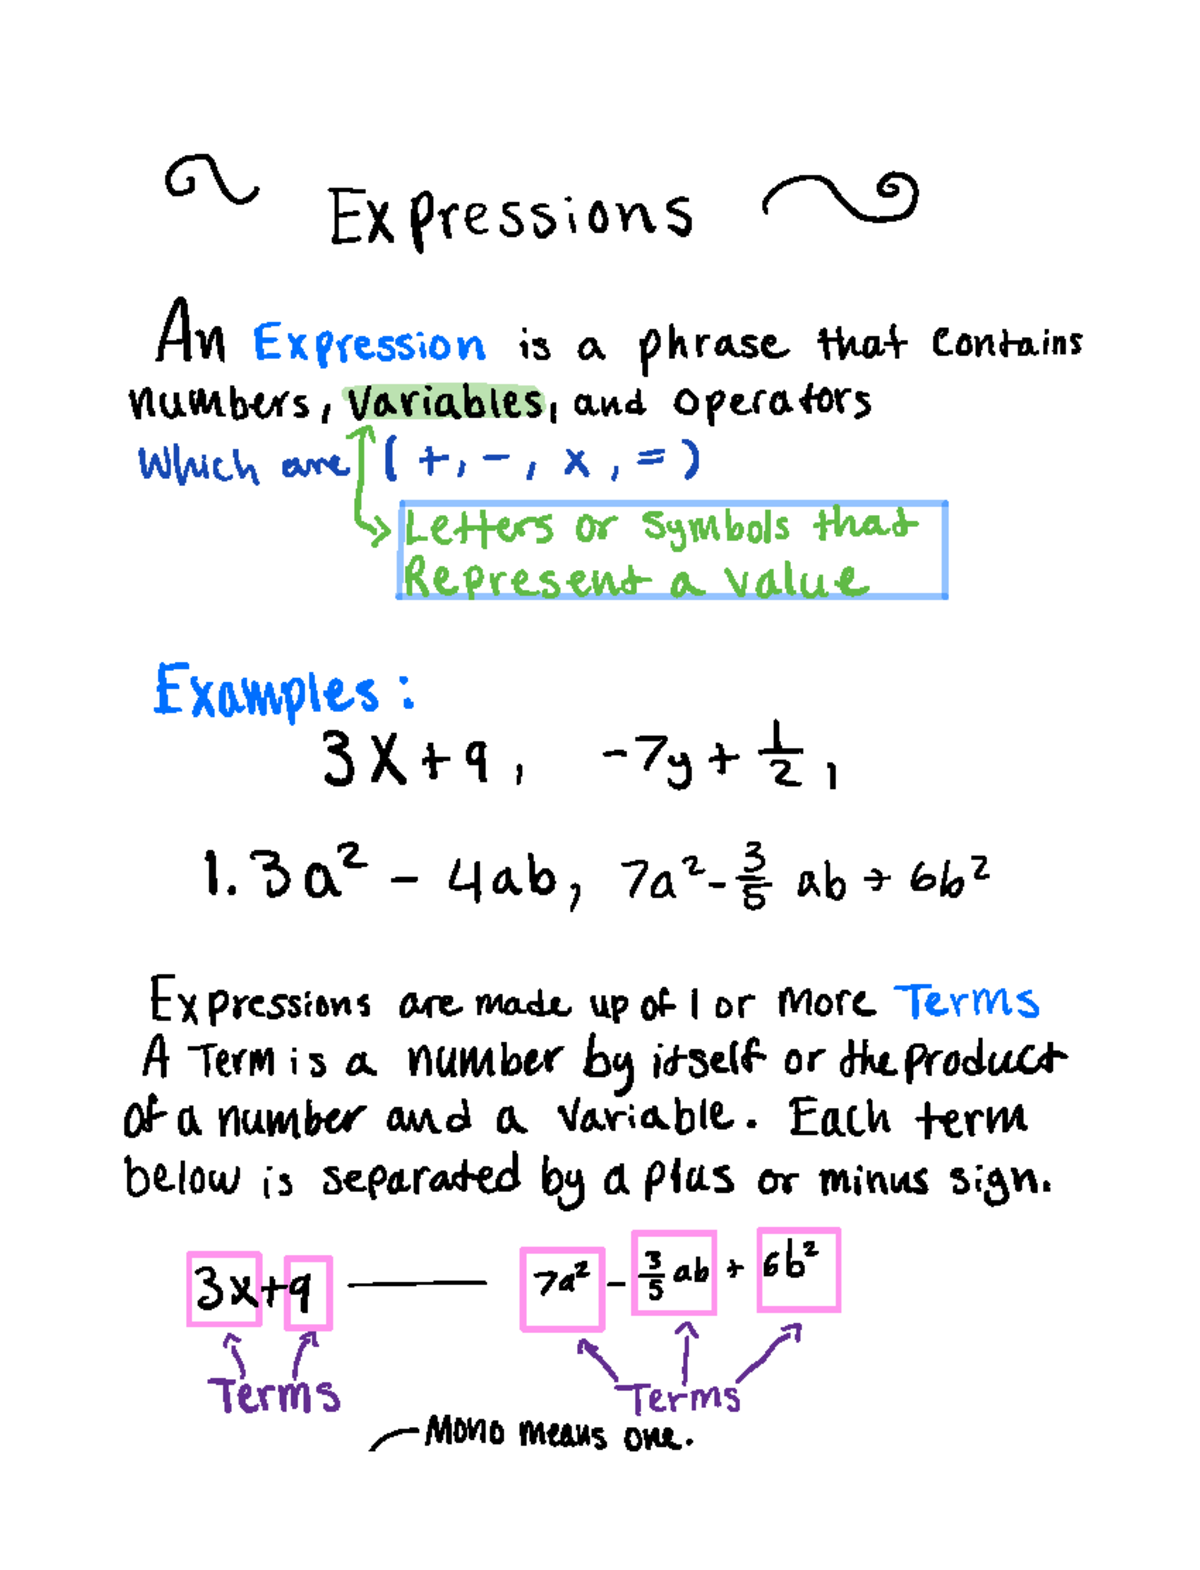 Expressions
An Expression is a phrase that contains
numbers, Variables, and operators
Which are ( +, -, x, = )
Letters or symbols that
Represent a value
Examples:
3x+9, -7y + 1/2,
1.3a² - 4ab, 7a² - 3/5 ab + 6b²
Expressions are made up of 1 or more Terms
A Term is a number by itself or the product
of a number and a variable. Each term
below is separated by a plus or minus sign.
3x+9 — 7a² - 3/5 ab + 6b²
Terms Terms
Mono means one.